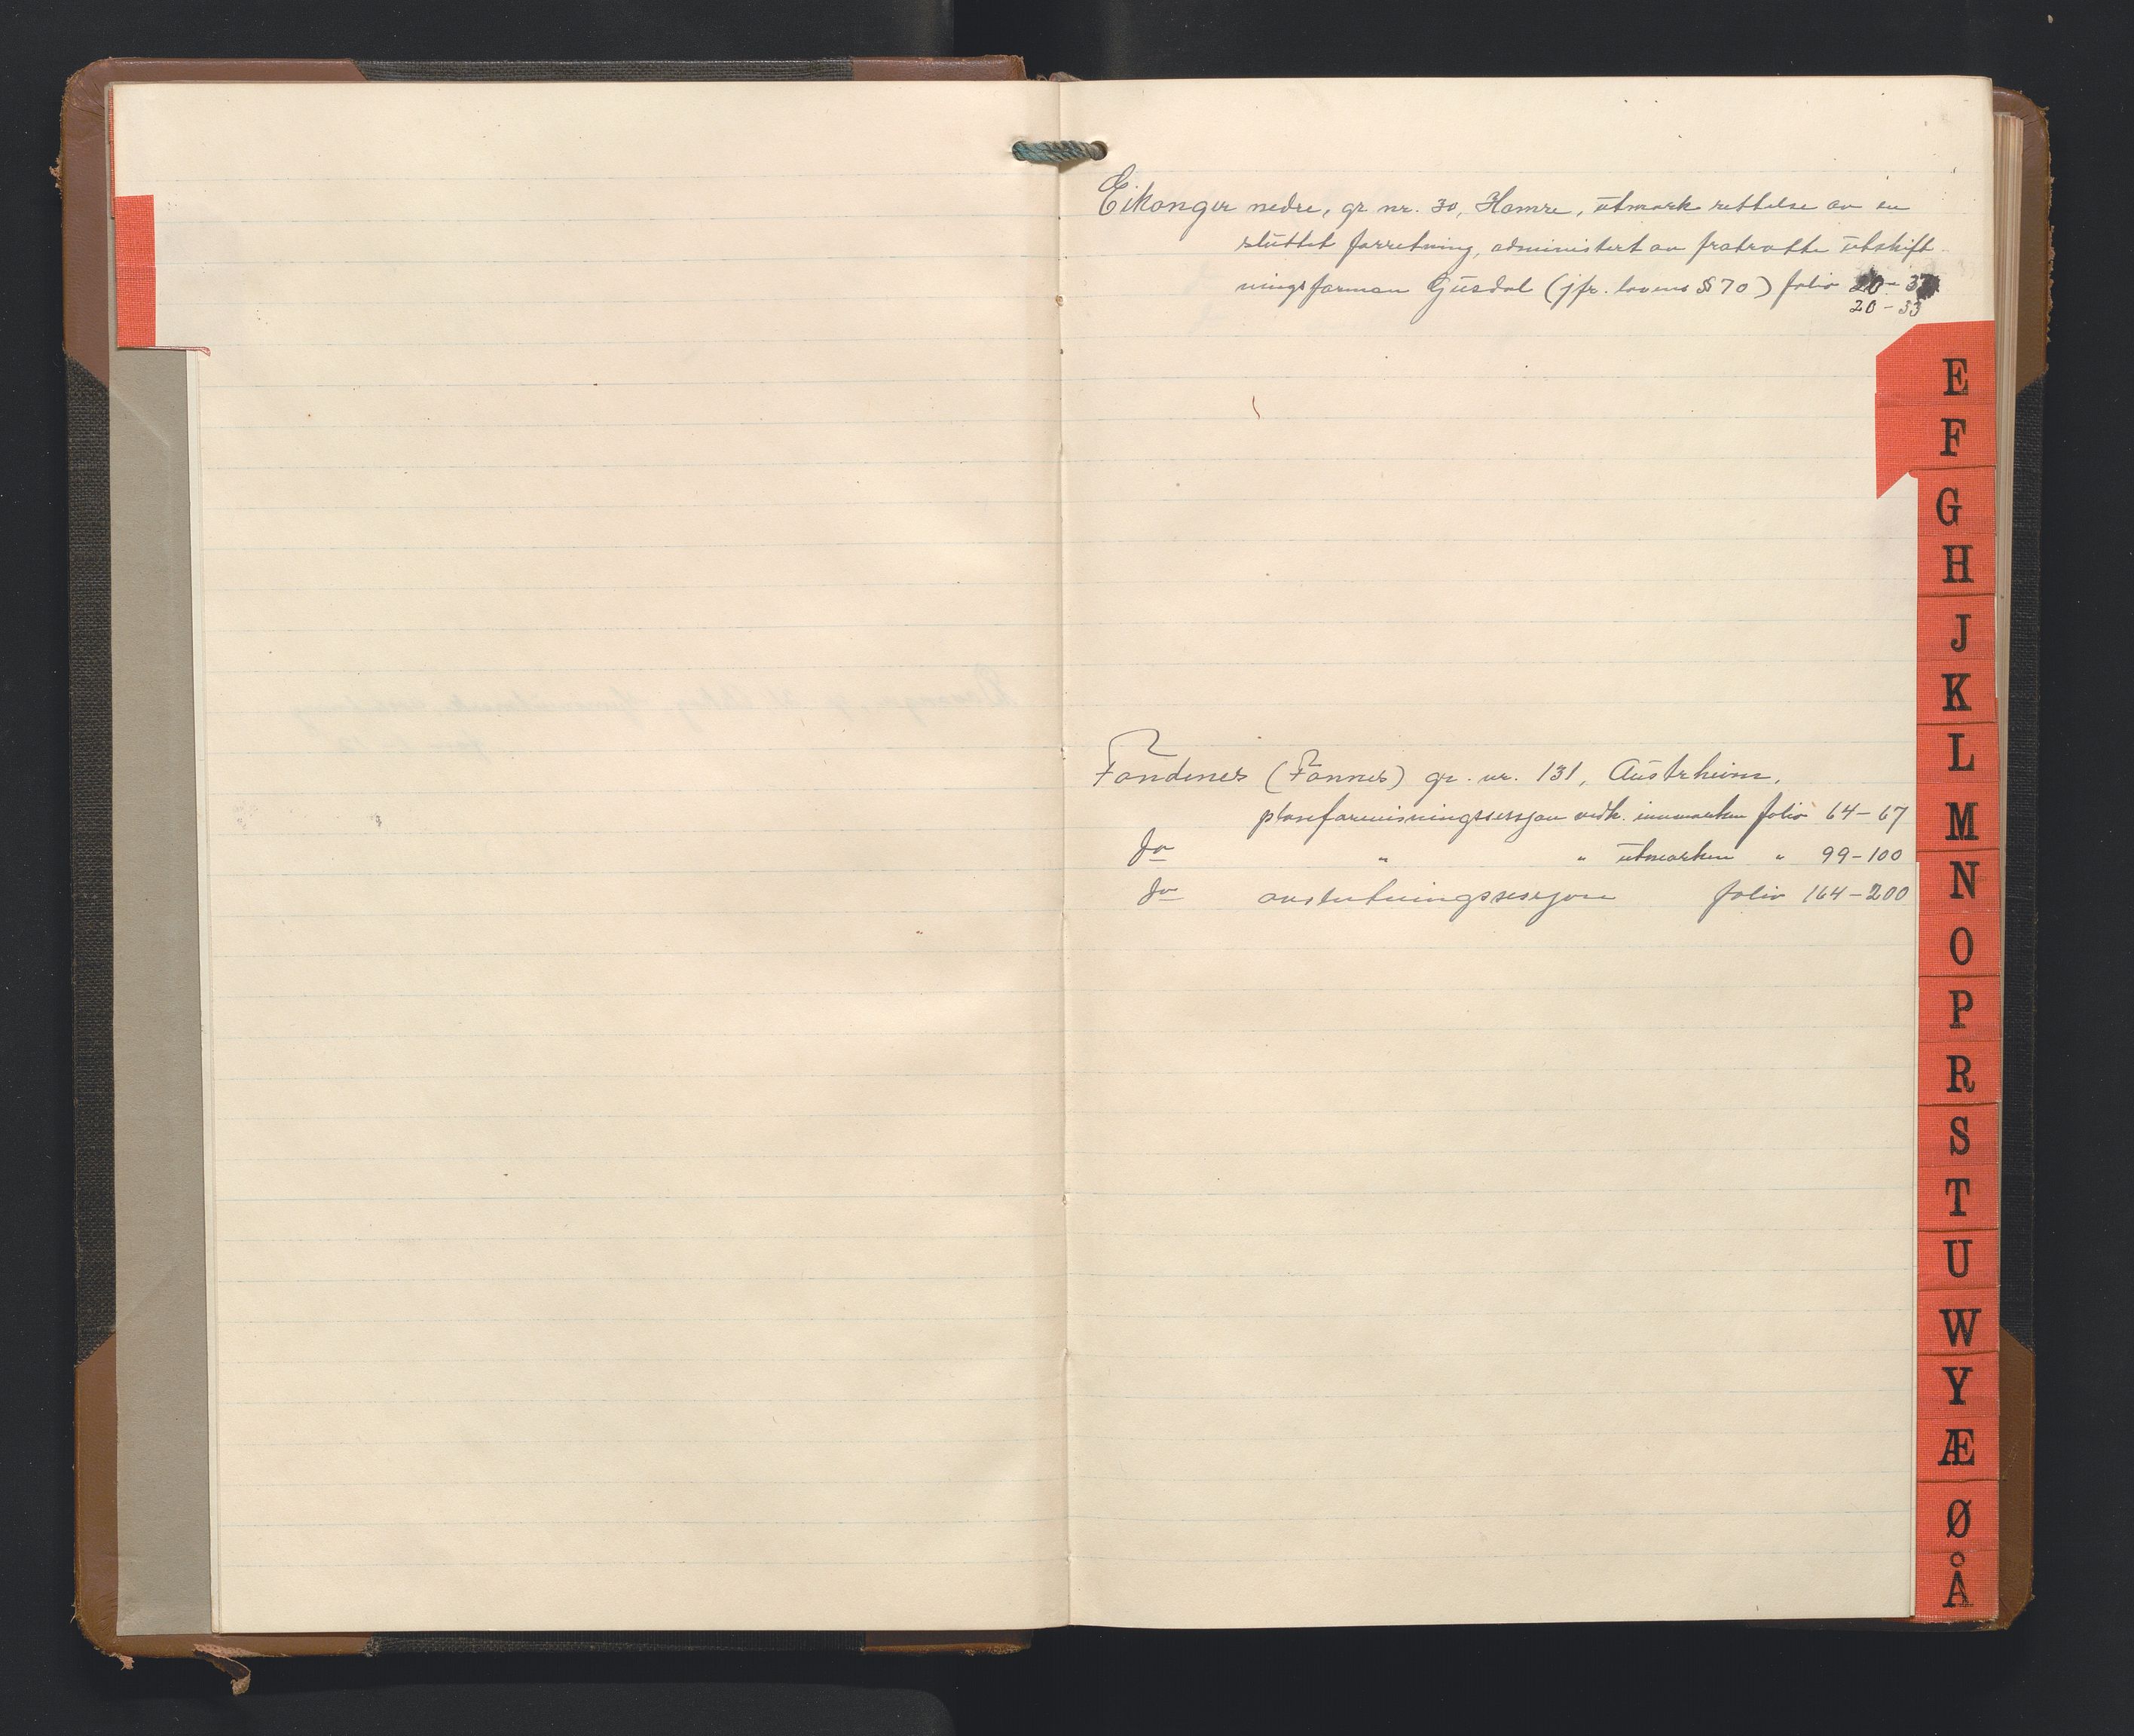 Eikanger nedre, gr. nr. 30, Hamre, utmark rettelse av en
sluttet forretning, administert av fratrådte utskift
ningsforman Gusdal (jfr. lovens § 70) folio 20-33
20-33
E
F
G
H
J
K
L
M
N
O
P
R
S
T
U
W
Y
Æ
Ø
Å
Fondenes (Fonnes) gr. nr. 131, Austrheim,
planforevisningssesjon vedk. innmarken folio 64-67
do " " utmarken " 99-100
do avslutningssesjon folio 164-200